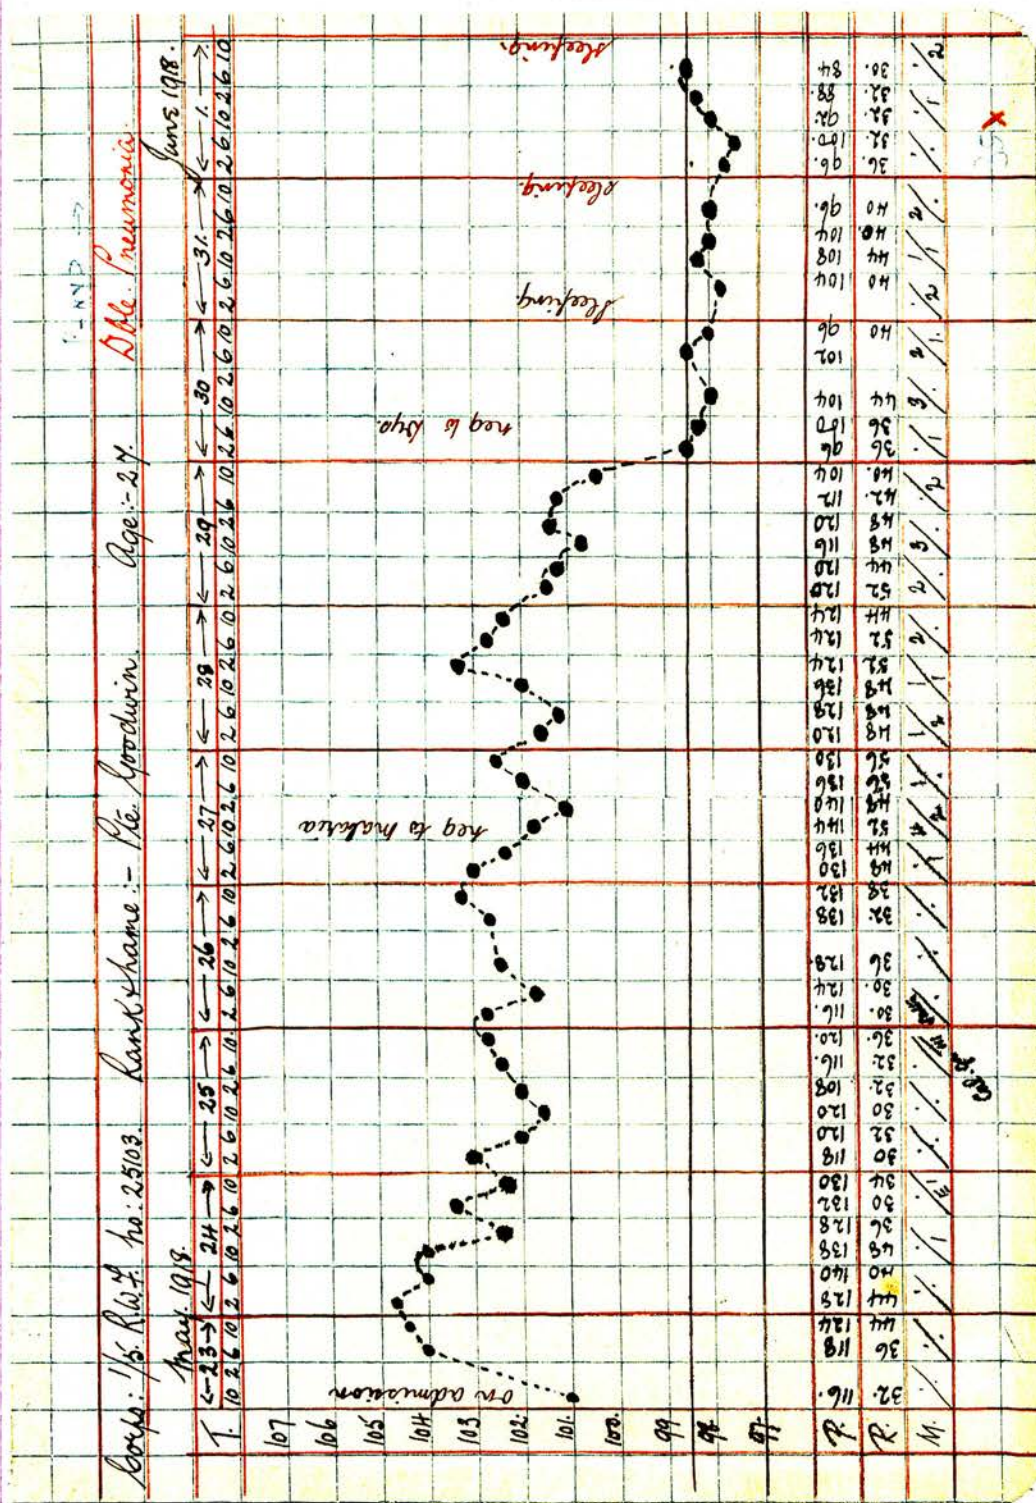 Corps: 1/5 R.W.F. No: 25103. Rank & Name:- Pte Goodwin. Age:- 27. Dble. Pneumonia
May. 1918. June 1918.
←23→ ←24→ ←25→ ←26→ ←27→ ←28→ ←29→ ←30→ ←31.→ ←1.→
T. 10 2 6 10 2 6 10 2 6 10 2 6 10 2 6 10 2 6 10 2 6 10 2 6 10 2 6 10 2 6 10 2 6 10 2 6 10 2 6 10 2 6 10 2 6 10 2 6 10 2 6 10 2 6 10 2 6 10
107
106
105
104
103
102
101.
100.
99
98.
97.
on admission
neg to malaria
neg to
sleeping.
sleeping.
sleeping.
P. 116. 118 124 128 140 138 128 132 130 118 120 120 108 116. 120. 116. 124 128. 138 132 130 136 144 140 136 130 120 128 136 124 124 124 120 120 116 120 112 104 96 100 104 102 96 104 108 104 96. 96. 100. 92 88. 84
R. 32. 36 44 44 40 48 36 30 34 30 32 30 32. 32. 36. 30. 30. 36 32. 38 48 44 52 48 56 56 48 48 48 52 52 44 52 44 48 48 42. 40. 36 36 44 40 40 44 40. 40 36. 32. 32. 32. 30.
M.